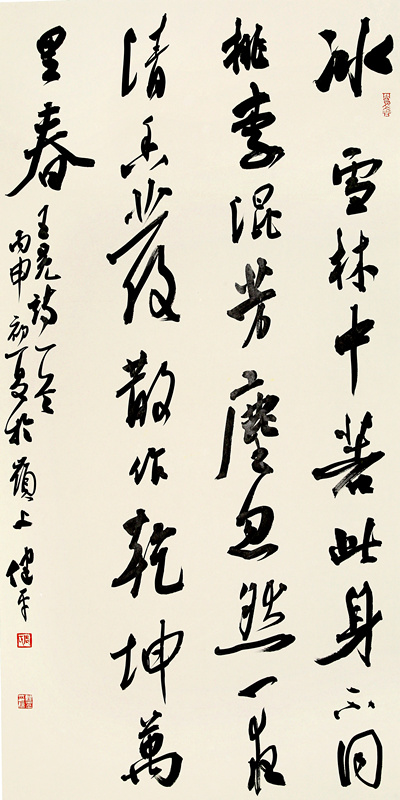 冰雪林中著此身不同
桃李混芳塵忽然一夜
清香發散作乾坤萬
里春
王冕詩一首
丙申初夏於嶺上健平